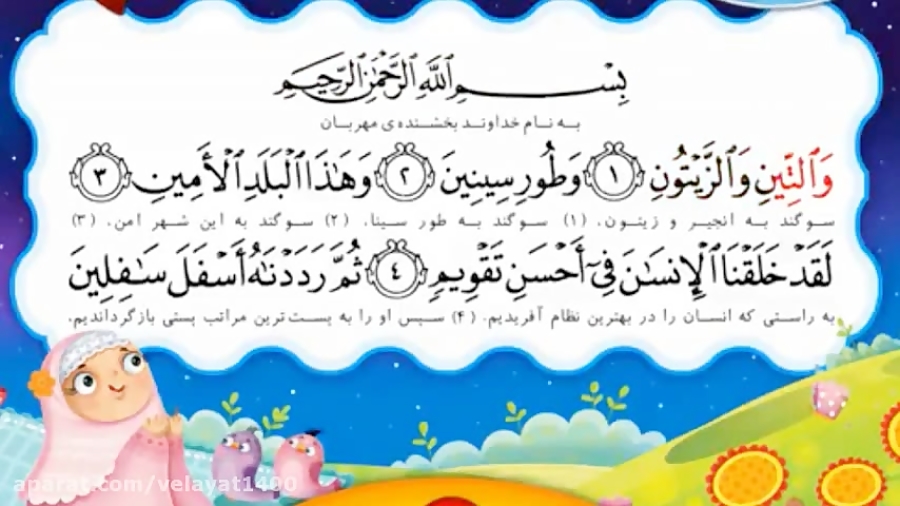 بِسْمِ ٱللَّهِ ٱلرَّحْمَٰنِ ٱلرَّحِيمِ
به نام خداوند بخشنده‌ی مهربان
وَٱلتِّينِ وَٱلزَّيْتُونِ ١ وَطُورِ سِينِينَ ٢ وَهَٰذَا ٱلْبَلَدِ ٱلْأَمِينِ ٣
سوگند به انجیر و زیتون، (۱) سوگند به طور سینا، (۲) سوگند به این شهر امن، (۳)
لَقَدْ خَلَقْنَا ٱلْإِنسَٰنَ فِىٓ أَحْسَنِ تَقْوِيمٍ ٤ ثُمَّ رَدَدْنَٰهُ أَسْفَلَ سَٰفِلِينَ
به راستی که انسان را در بهترین نظام آفریدیم. (۴) سپس او را به پست‌ترین مراتب پستی بازگرداندیم.
aparat.com/velayat1400